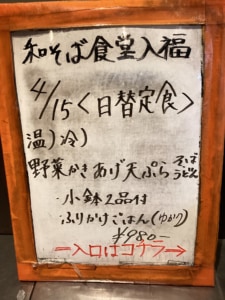 和そば食堂入福
4/15<日替定食>
温)冷)
野菜かきあげ天ぷら そば
うどん
小鉢2品付
ふりかけごはん(ゆかり)
¥980-
ー入口はコチラ→